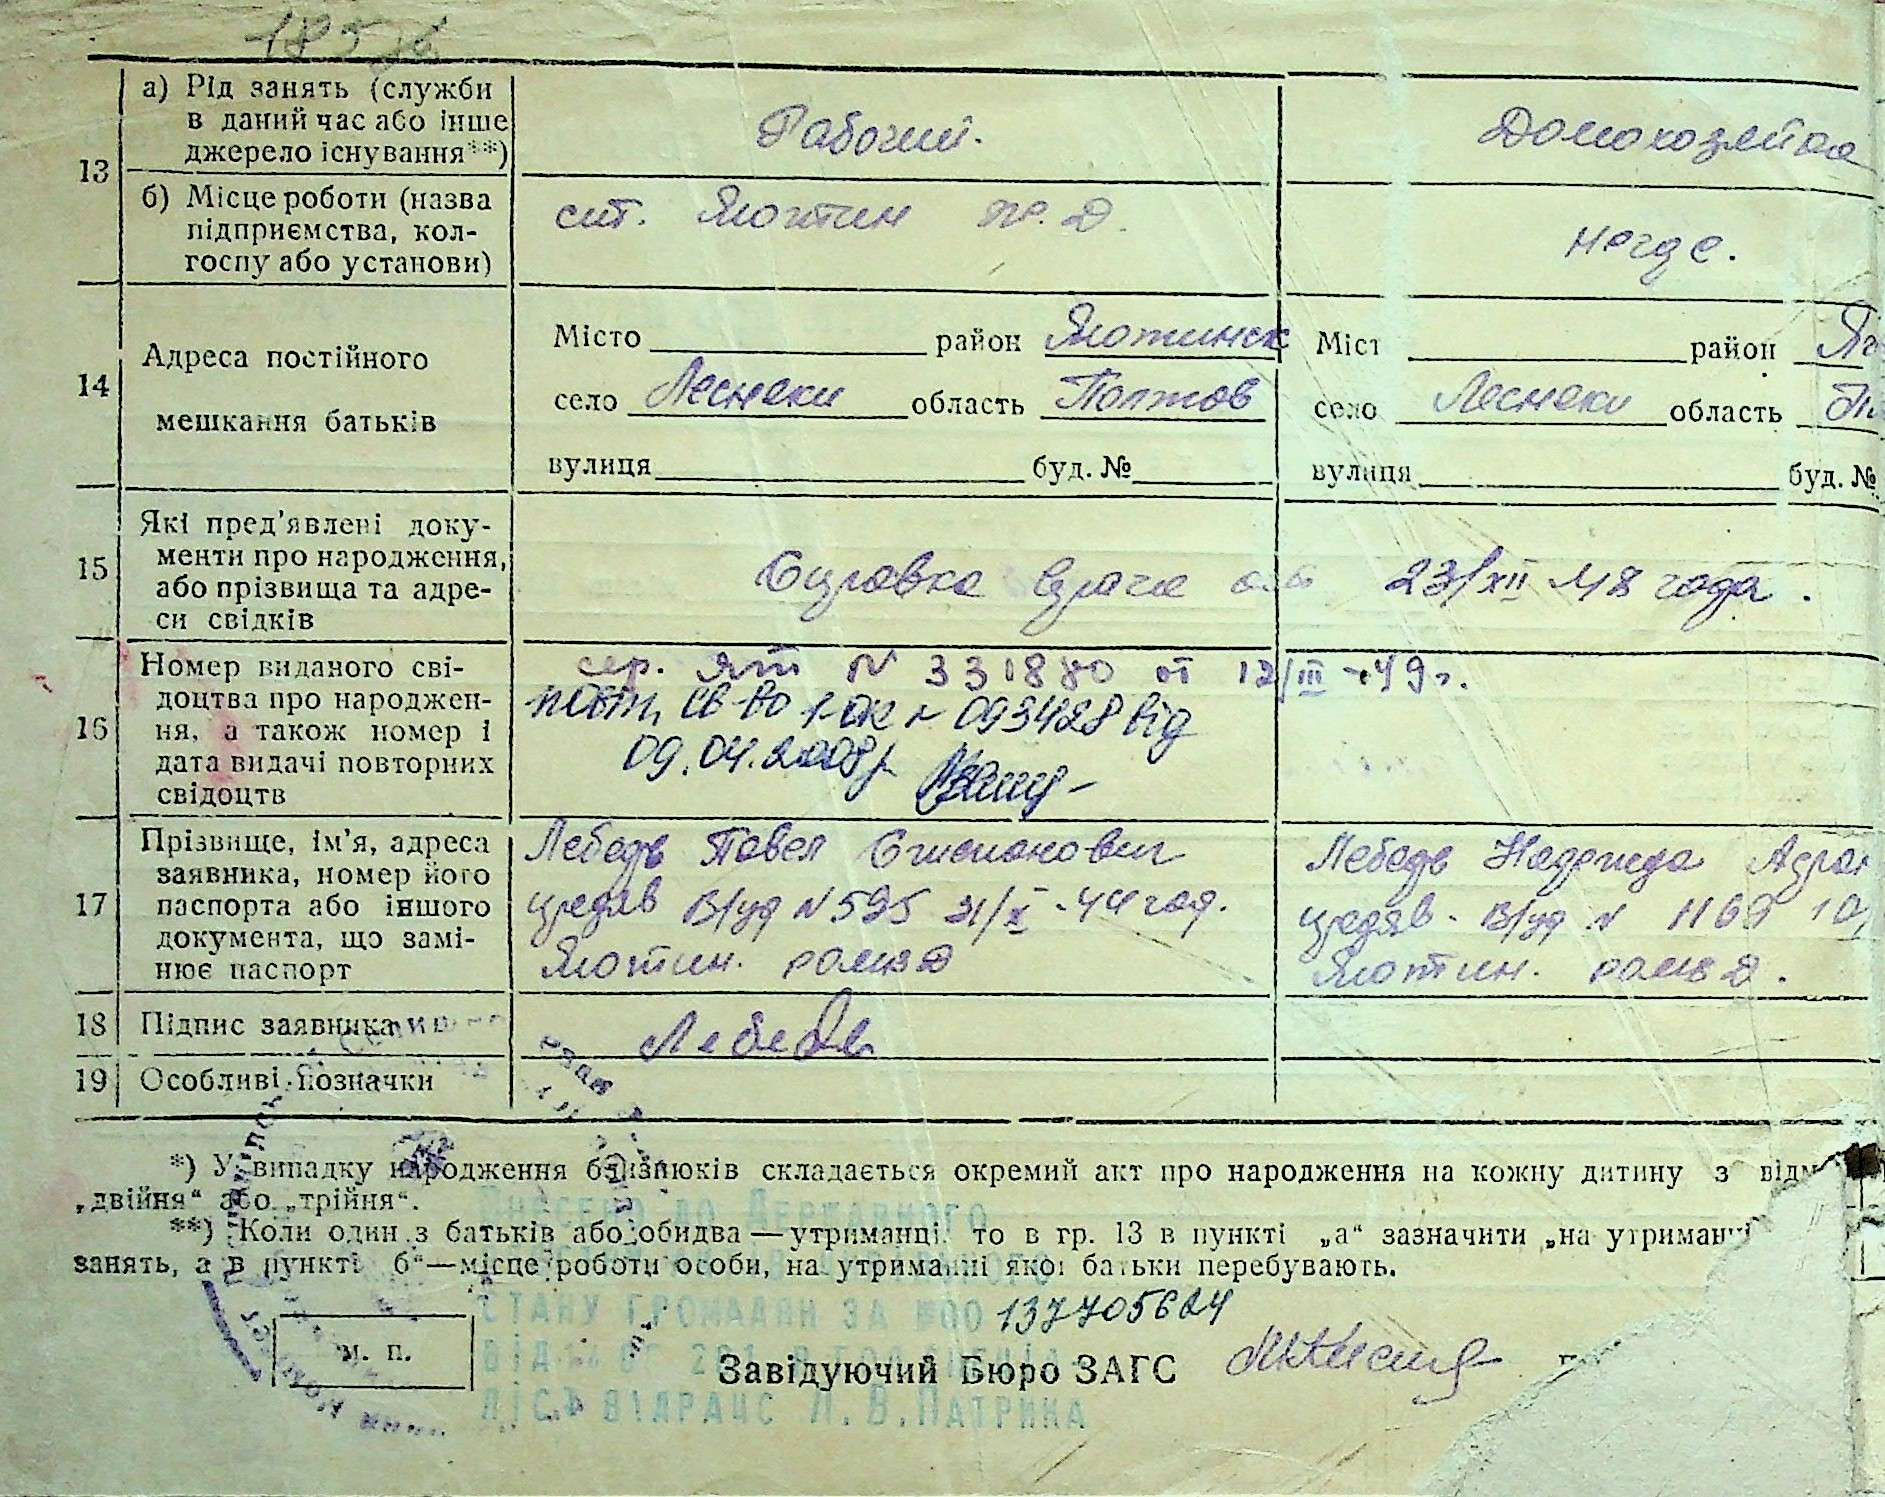 13
а) Рід занять (служби
в даний час або інше
джерело існування**)
Рабочий.
Домохозяйка
б) Місце роботи (назва
підприємства, кол-
госпу або установи)
ст. Яготин ж. д.
негде.
14
Адреса постійного
мешкання батьків
Місто район Яготинск
село Леснеки область Полтов
вулиця буд. №
Міст район Яг
село Леснеки область
вулиця буд. №
15
Які пред'явлені доку-
менти про народження,
або прізвища та адре-
си свідків
Справка врача от 23/XII 48 года.
16
Номер виданого сві-
доцтва про народжен-
ня, а також номер і
дата видачі повторних
свідоцтв
сер. ЯТ N 331880 от 12/III-49 г.
повт. св-во 1-ок N 093428 від
09.04.2008р.
17
Прізвище, ім'я, адреса
заявника, номер його
паспорта або іншого
документа, що замі-
нює паспорт
Лебедь Павел
предяв В/уд N 595 21/X-44 год.
Яготин.
Лебедь Надежда
предяв. В/уд N 1169
Яготин.
18
Підпис заявника
Лебедь
19
Особливі позначки
*) У випадку народження близнюків складається окремий акт про народження на кожну дитину з відм
„двійня“ або „трійня“.
**) Коли один з батьків або обидва—утриманці, то в гр. 13 в пункті „а“ зазначити „на утриманні
занять, а в пункті б“—місце роботи особи, на утриманні якої батьки перебувають.
Внесено до Державного
стану громадян за №00 137705624
м. п.
Завідуючий Бюро ЗАГС
Л. В. Патрика